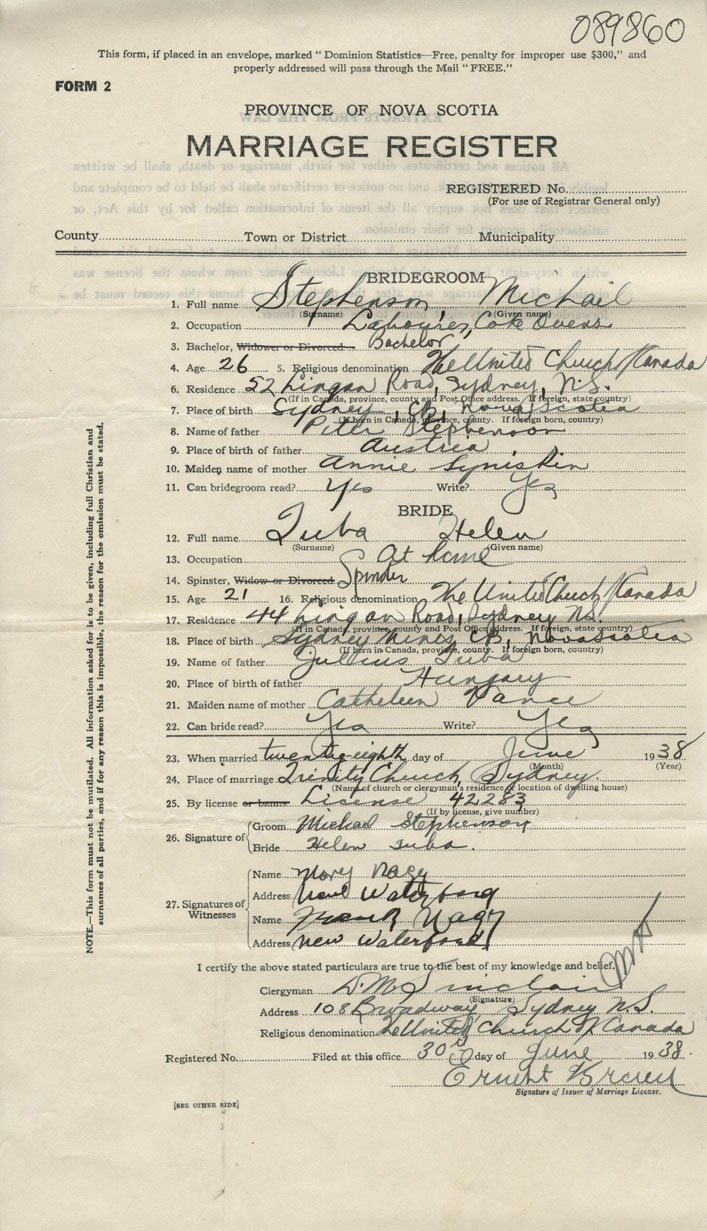 089860
This form, if placed in an envelope, marked "Dominion Statistics—Free, penalty for improper use $300," and
properly addressed will pass through the Mail "FREE."
FORM 2
PROVINCE OF NOVA SCOTIA
MARRIAGE REGISTER
REGISTERED No.
(For use of Registrar General only)
County Town or District Municipality
BRIDEGROOM
1. Full name Stephenson Michail
(Surname) (Given name)
2. Occupation Labourer, Coke Ovens
3. Bachelor, Widower or Divorced Bachelor
4. Age 26 5. Religious denomination The United Church of Canada
6. Residence 52 Lingan Road, Sydney, N.S.
(If in Canada, province, county and Post Office address. If foreign, state country)
7. Place of birth Sydney, C.B, Nova Scotia
(If born in Canada, province, county. If foreign born, country)
8. Name of father Peter Stephenson
9. Place of birth of father Austria
10. Maiden name of mother Annie
11. Can bridegroom read? Yes Write? Yes
BRIDE
12. Full name Juba Helen
(Surname) (Given name)
13. Occupation At home
14. Spinster, Widow or Divorced Spinster
15. Age 21 16. Religious denomination The United Church of Canada
17. Residence 44 Lingan Road, Sydney N.S.
(If in Canada, province, county and Post Office address. If foreign, state country)
18. Place of birth Sydney Mines, C.B, Nova Scotia
(If born in Canada, province, county. If foreign born, country)
19. Name of father Jullius Juba
20. Place of birth of father Hungary
21. Maiden name of mother Catheleen Vance
22. Can bride read? Yes Write? Yes
23. When married twenty-eighth day of June 1938
(Month) (Year)
24. Place of marriage Trinity Church, Sydney.
(Name of church or clergyman's residence or location of dwelling house)
25. By license or banns License 42283
(If by license, give number)
26. Signature of Groom Michael Stephenson
Bride Helen Juba.
27. Signatures of Witnesses
Name Mary Nagy
Address New Waterford
Name Frank Nagy
Address New Waterford
I certify the above stated particulars are true to the best of my knowledge and belief.
Clergyman D. M. Sinclair
(Signature)
Address 108 Broadway Sydney N.S.
Religious denomination The United Church of Canada
Registered No. Filed at this office 30th day of June 1938.
Ernest
Signature of Issuer of Marriage License.
[SEE OTHER SIDE]
NOTE.—This form must not be mutilated. All information asked for is to be given, including full Christian and
surnames of all parties, and if for any reason this is impossible, the reason for the omission must be stated.